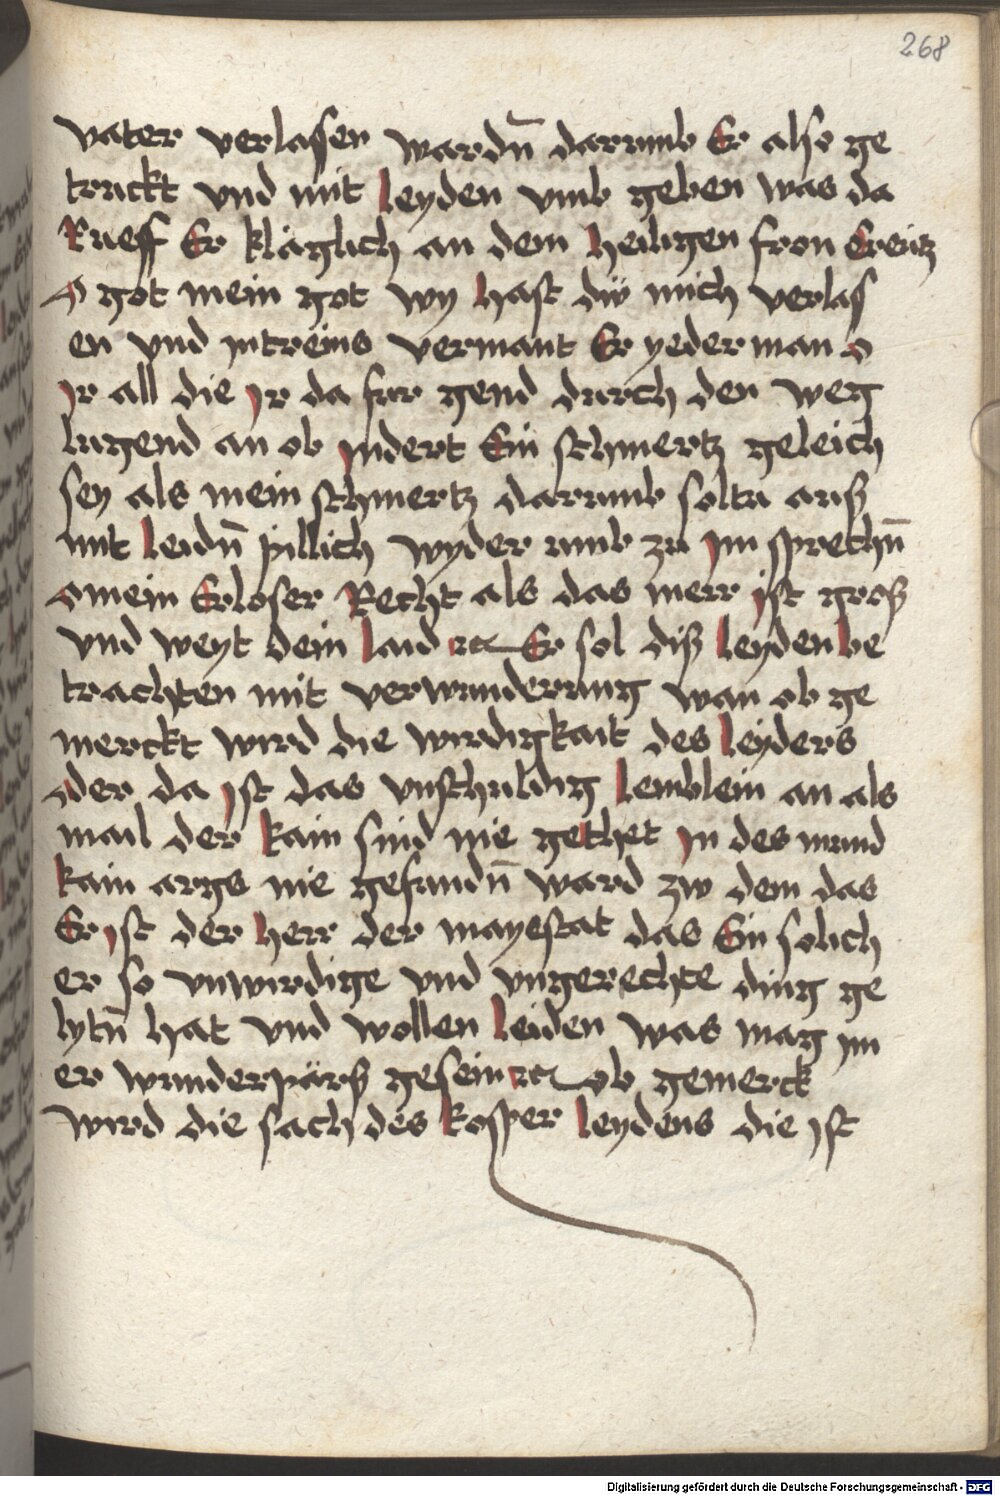 268
vater verlassen wardn̄ darumb Er also ge
truckt vnd mit leyden vmb geben was da
Rueff Er kläglich an dem heiligen fron Creütz
O got mein got wy hast dw mich verlass
en vnd intreins vermant Er yederman o
ir all die ir da fur gend durch den weg
lugend an ob indert Ein schmertz geleich
sey als mein schmertz darumb soltu auß
mit leidn̄ pillich wyder umb zu im sprechn̄
o mein Erloser Recht als das merr ist groß
vnd weyt dein laid ꝛc Er sol diß leyden be
trachten mit verwunderung wan ob ge
merckt wird die wirdigkait des leyders
der da ist das vnschuldig lemblein an als
mail der kain sind nie gethet in des mund
kain args nie gefundn̄ ward zw dem das
Er ist der herr der mayestat das Ein solich
er so vnwirdige vnd vngerechte ding ge
lytn̄ hat vnd wollen leiden was mag im
er wunderpärß gesein ꝛc ob gemerck
wird die sach des kosper leydens die ist
Digitalisierung gefördert durch die Deutsche Forschungsgemeinschaft - DFG